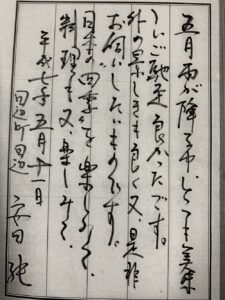 五月雨が降る中、とても美味
しいご馳走良かったです。
外の景しきも良く又、是非
お伺いしたいものです。
日本の四季を楽しみ
料理も又、楽しみで
平成七年五月十一日
田辺町田辺 安田 純